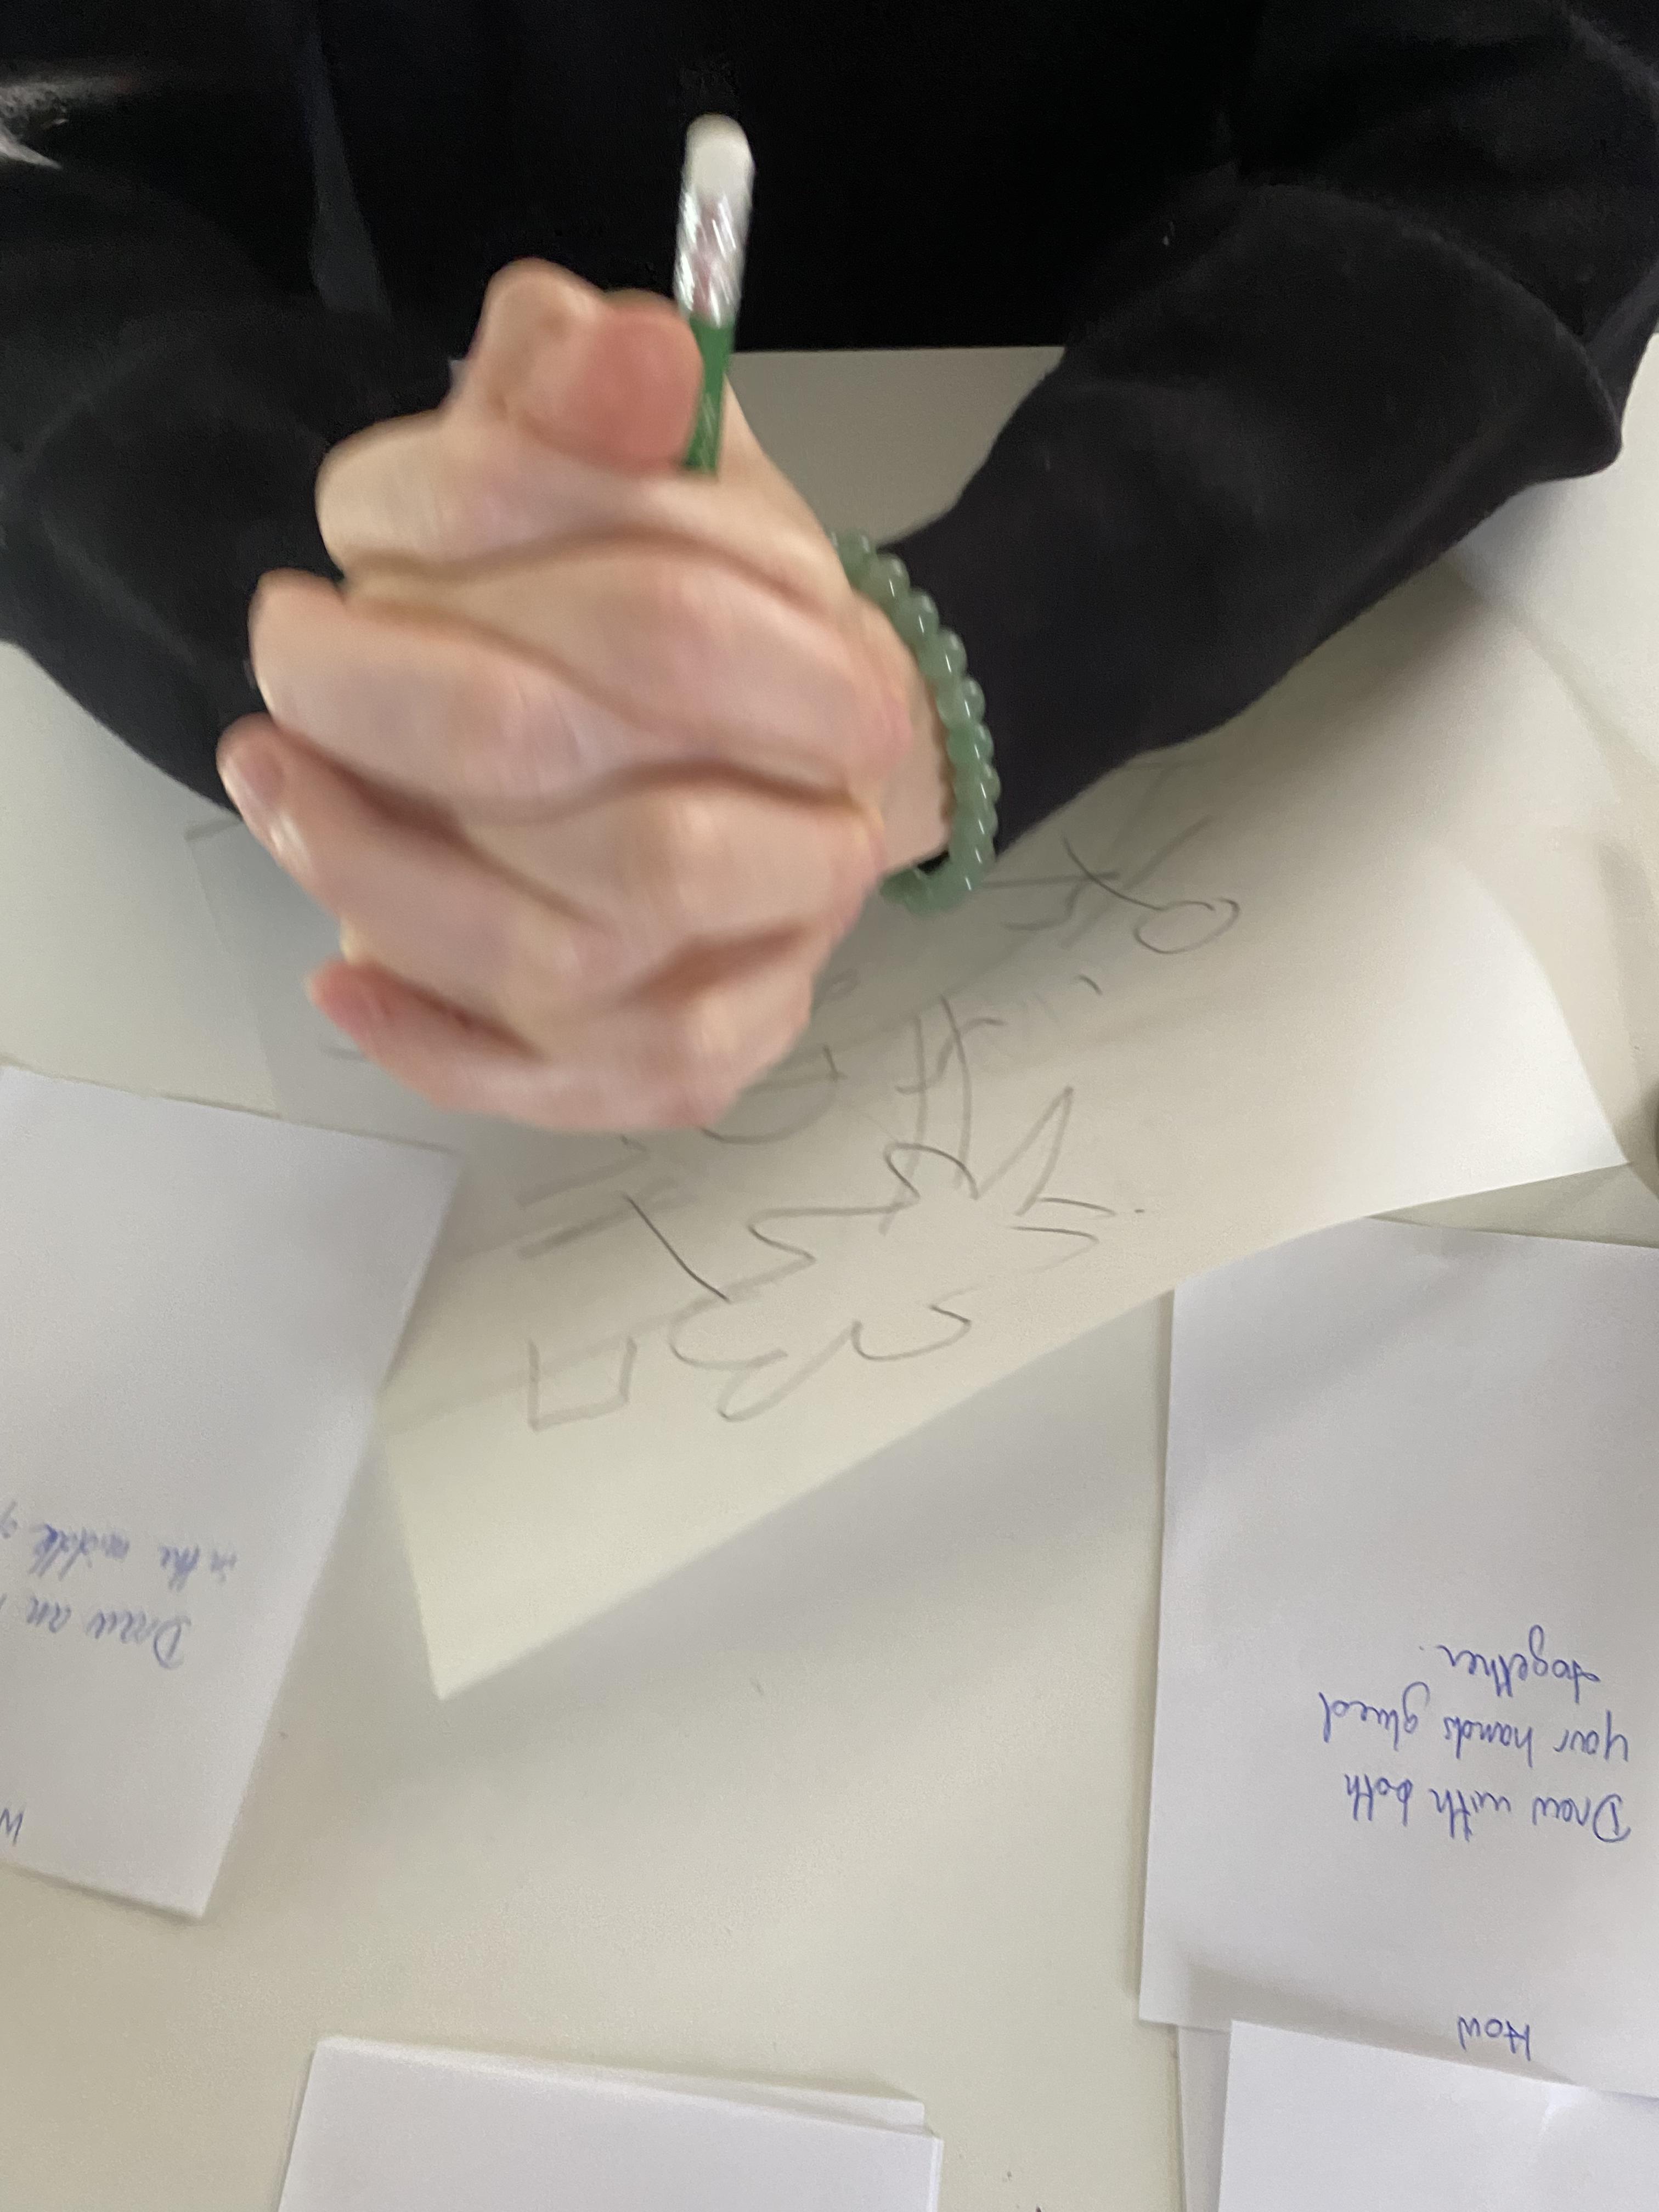 How
Draw with both
your hands glued
together.
W
Draw an
in the middle